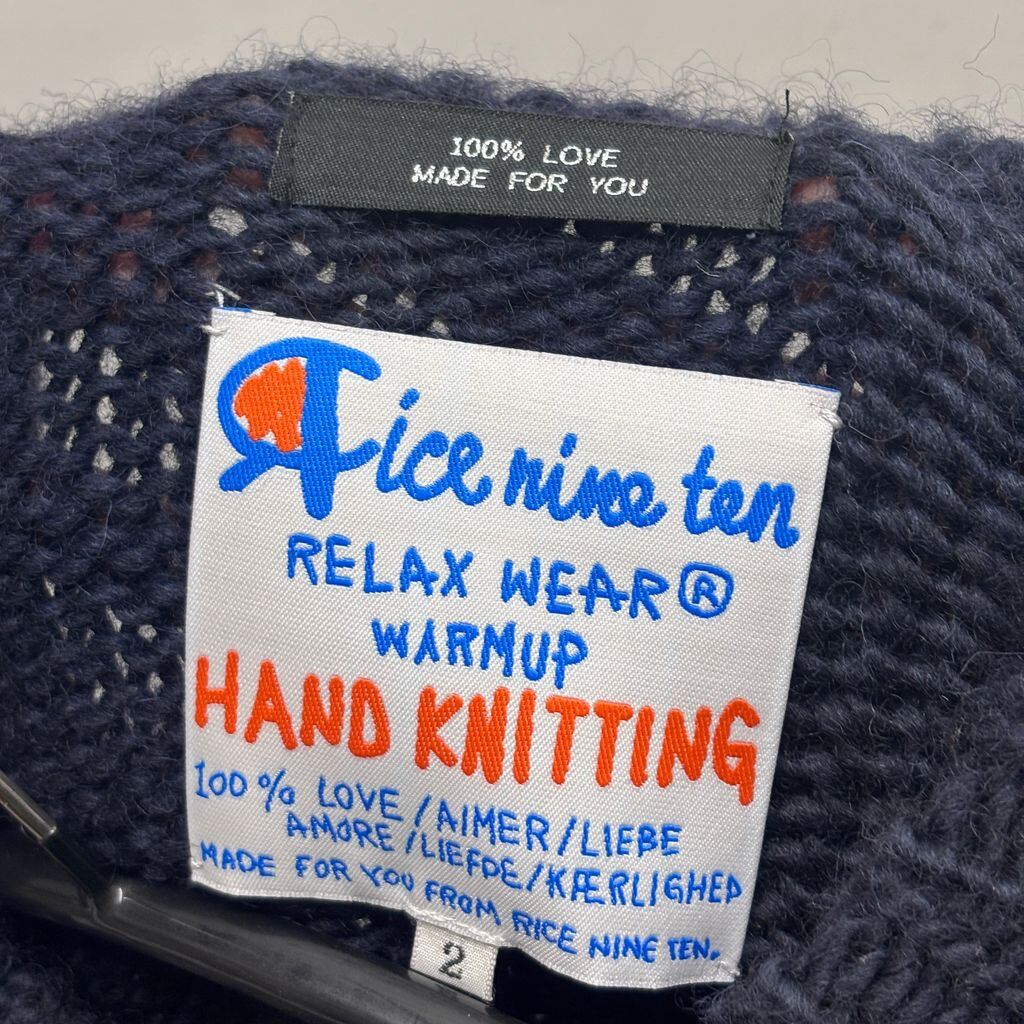 100% LOVE
MADE FOR YOU
Rice nine ten
RELAX WEAR®
WARMUP
HAND KNITTING
100% LOVE/AIMER/LIEBE
AMORE/LIEFDE/KÆRLIGHED
MADE FOR YOU FROM RICE NINE TEN.
2